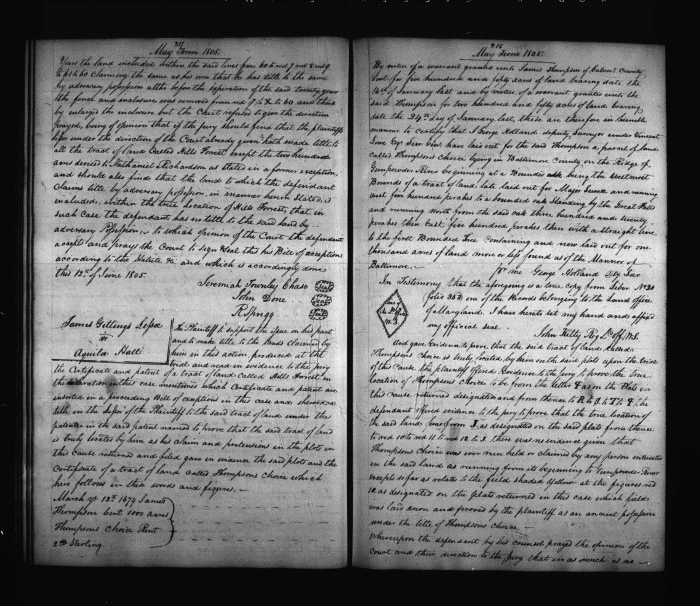 217
May Term 1805.
Years the land included within the said lines from 60 to red 7 red 8 red 9
to 61 to 60 claiming the same as his own that he has title to the same
by adversary possession altho before the expiration of the said twenty years
the fence and inclosure was removed from red 7 to X to 60 and there
by enlarged the inclosure but the Court refused to give the direction
prayed, being of opinion that if the jury should find that the plaintiff
has under the direction of the Court already given hath made title to
all the tract of land called Hills Forest except the two hundred
acres devised to Nathaniel Richardson as stated in a former exception
and should also find that the land to which the defendant
claims title by adversary possession, in manner herein stated, is
included within the true location of Hills Forest, that in
such case the defendant has no title to the said land by
adversary possession, to which opinion of the Court the defendant
except and prays the Court to sign & seal this his Bill of exception
according to the Statute &c and which is accordingly done
this 12th of June 1805.
Jeremiah Townley Chase {Seal}
John Done {Seal}
R Sprigg {Seal}
James Gittings Lessee
vs
Aquila Hall
The Plaintiff to support the issue on his part
and to make title to the lands claimed by
him in this action produced at the
trial and read in evidence to the jury
the Certificate and patent of a tract of land called Hills Forest in
the declaration in this case mentioned which Certificate and patent are
inserted in a preceeding Bill of exceptions in this case and shewed a
title in the Lessor of the Plaintiff to the said tract of land under the
patentee in the said patent named to prove that the said tract of land
is truly located by him as his claim and pretensions in the plots in
this Cause returned and filed gave in evidence the said plots and the
Certificate of a tract of land called Thompsons Choice which
here follows in these words and figures, —
March ye 13th 1679 James
Thompson Cert 1000 acres
Thompsons Choice Rent
2th Sterling
218
May Term 1805.
By virtue of a warrant granted unto James Thompson of Calvert County
Gent for five hundred and fifty acres of land bearing date the
16th of January last and by virtue of a warrant granted unto the
said Thompson for two hundred and fifty acres of land bearing
date the 24th day of January last, these are therefore in humble
manner to certify that I George Holland deputy Surveyor under Vincent
Lowe Esqr Surv Genl have laid out for the said Thompson a parcel of land
called Thompsons Choice lying in Baltimore County on the Ridge of
Gunpowder River beginning at a Bounded oak being the westmost
Bounds of a tract of land late laid out for Major Sewall and running
west five hundred perches to a bounded oak standing by the Great Falls
and running north from the said oak three hundred and twenty
perches then East five hundred perches then with a straight line
to the first Bounded Tree Containing and now laid out for one
thousand acres of land more or less to be held of the Mannor of
Baltimore. —
pr me George Holland Dy Surv
In Testimony that the aforegoing is a true copy from Liber No 20
folio 350 one of the Records belonging to the Land Office
of Maryland. I have hereto set my hand and affixed
my official seal.
John Kilty Reg L. Off. W.S.
And gave Evidence to prove that the said tract of land called
Thompsons Choice is truly located by him on the said plots upon the trial
of this Cause. The plaintiff offered Evidence to the jury to prove the true
location of Thompsons Choice to be from the letter F as on the Plots in
this cause returned designated and from thence to R to S to T to F. The
defendant offered evidence to the jury to prove that the true location of
the said land was from I. as designated on the said plats from thence
to red 10 to red 11 to red 12 to I. there was no evidence given that
Thompsons Choice was ever run held or claimed by any person interested
in the said land as running from its beginning to Gunpowder River
except so far as relates to the field shaded yellow at the figures red
10 as designated on the plat returned in this case which field
was laid down and proved by the plaintiff as an ancient possession
under the title of Thompsons choice —
Whereupon the defendant by his counsel prayed the opinion of the
Court and their direction to the jury that in as much as no —